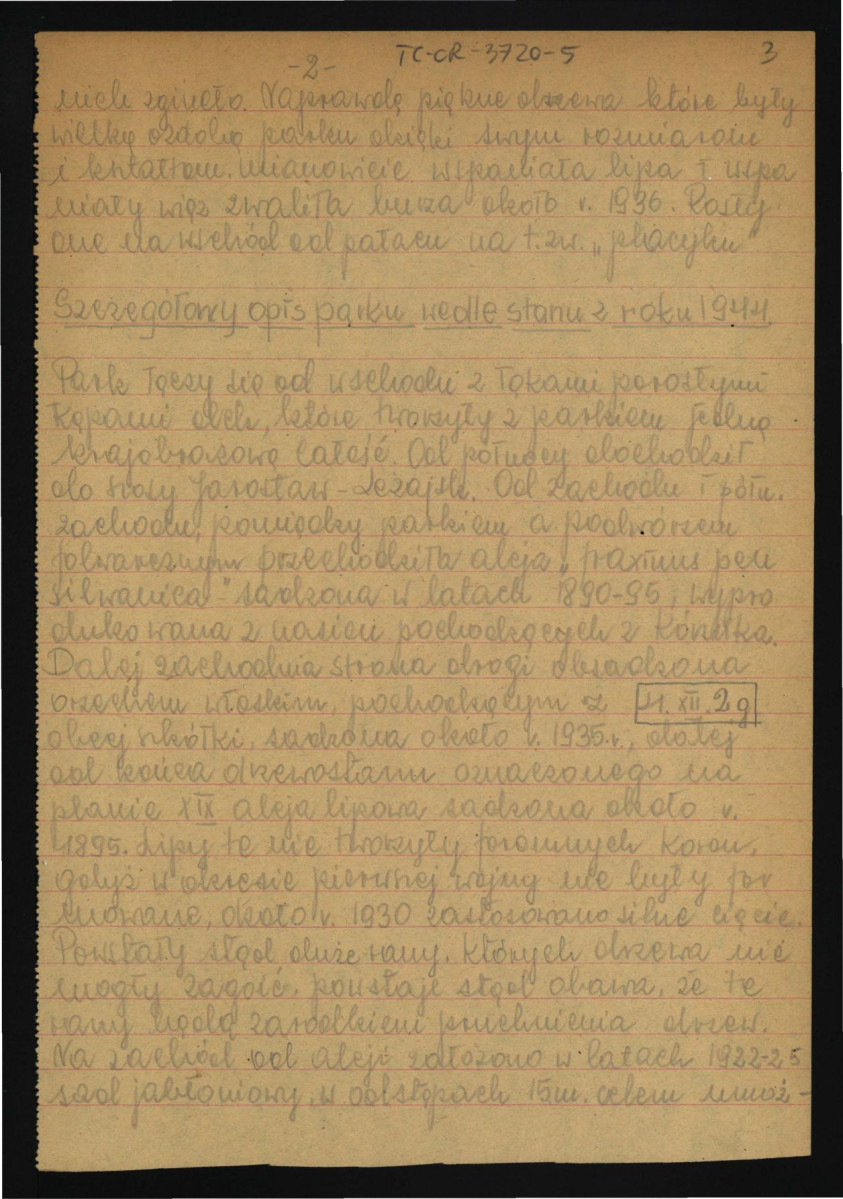 -2- TC-CR-3720-5 3
nich zginęło. Naprawdę piękne drzewa które były
wielką ozdobą parku dzięki swym rozmiarom
i kształtom. mianowicie wspaniała lipa i wspa
niały wiąz zwaliła burza około r. 1936. Rosły
one na wschód od pałacu na t.zw. „placyku"
Szczegółowy opis parku wedle stanu z roku 1944.
Park łączy się od wschodu z łąkami porosłymi
kępami olch, które tworzyły z parkiem jedną
krajobrazową całość. Od północy dochodził
do szosy Jarosław - Leżajsk. Od zachodu i półn.
zachodu, pomiędzy parkiem a podwórzem
folwarcznym przechodziła aleja „fraxinus pen
silwanica" sadzona w latach 1890-95, wypro
dukowana z nasion pochodzących z Kórnika.
Dalej zachodnia strona drogi obsadzona
orzechem włoskim, pochodzącym z 4. XII. 2g
obcej szkółki, sadzona około r. 1935 r., dalej
od końca drzewostanu oznaczonego na
planie XIX aleja lipowa sadzona około r.
1895. Lipy te nie tworzyły foremnych koron,
gdyż w okresie pierwszej wojny nie były for
mowane, około r. 1930 zastosowano silne cięcie.
Powstały stąd duże rany, których drzewa nie
mogły zagoić, powstaje stąd obawa, że te
rany będą zarodkiem próchnienia drzew.
Na zachód od aleji założono w latach 1922-25
sad jabłoniowy, w odstępach 15m. celem umoż-